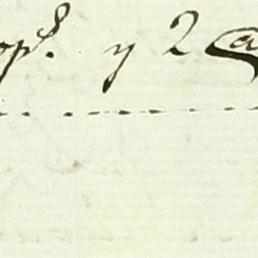 op.s y 2 @